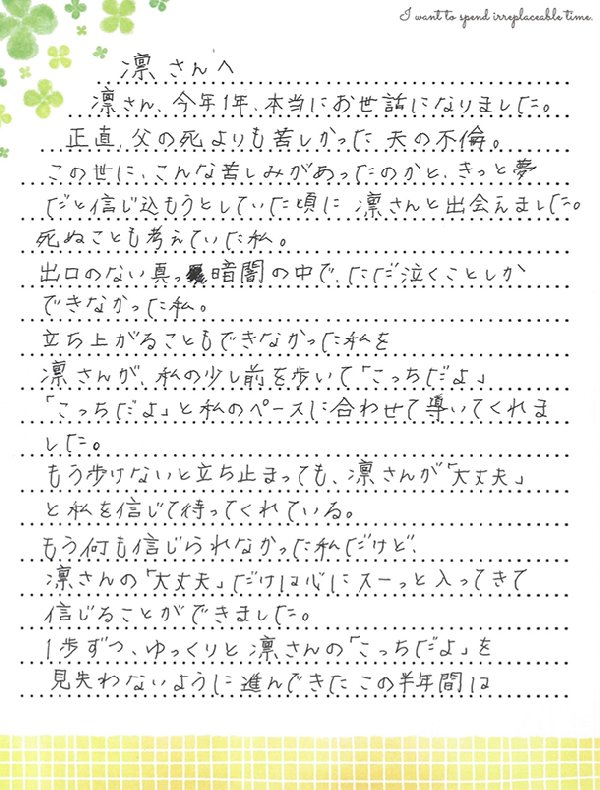 I want to spend irreplaceable time.
凛さんへ
凛さん、今年1年、本当にお世話になりました。
正直、父の死よりも苦しかった夫の不倫。
この世に、こんな苦しみがあったのかと、きっと夢
だと信じ込もうとしていた頃に凛さんと出会えました。
死ぬことも考えていた私。
出口のない真っ暗闇の中で、ただ泣くことしか
できなかった私。
立ち上がることもできなかった私を
凛さんが、私の少し前を歩いて「こっちだよ」
「こっちだよ」と私のペースに合わせて導いてくれま
した。
もう歩けないと立ち止まっても、凛さんが「大丈夫」
と私を信じて待ってくれている。
もう何も信じられなかった私だけど、
凛さんの「大丈夫」だけは心にスーっと入ってきて
信じることができました。
1歩ずつ、ゆっくりと凛さんの「こっちだよ」を
見失わないように進んできたこの半年間は